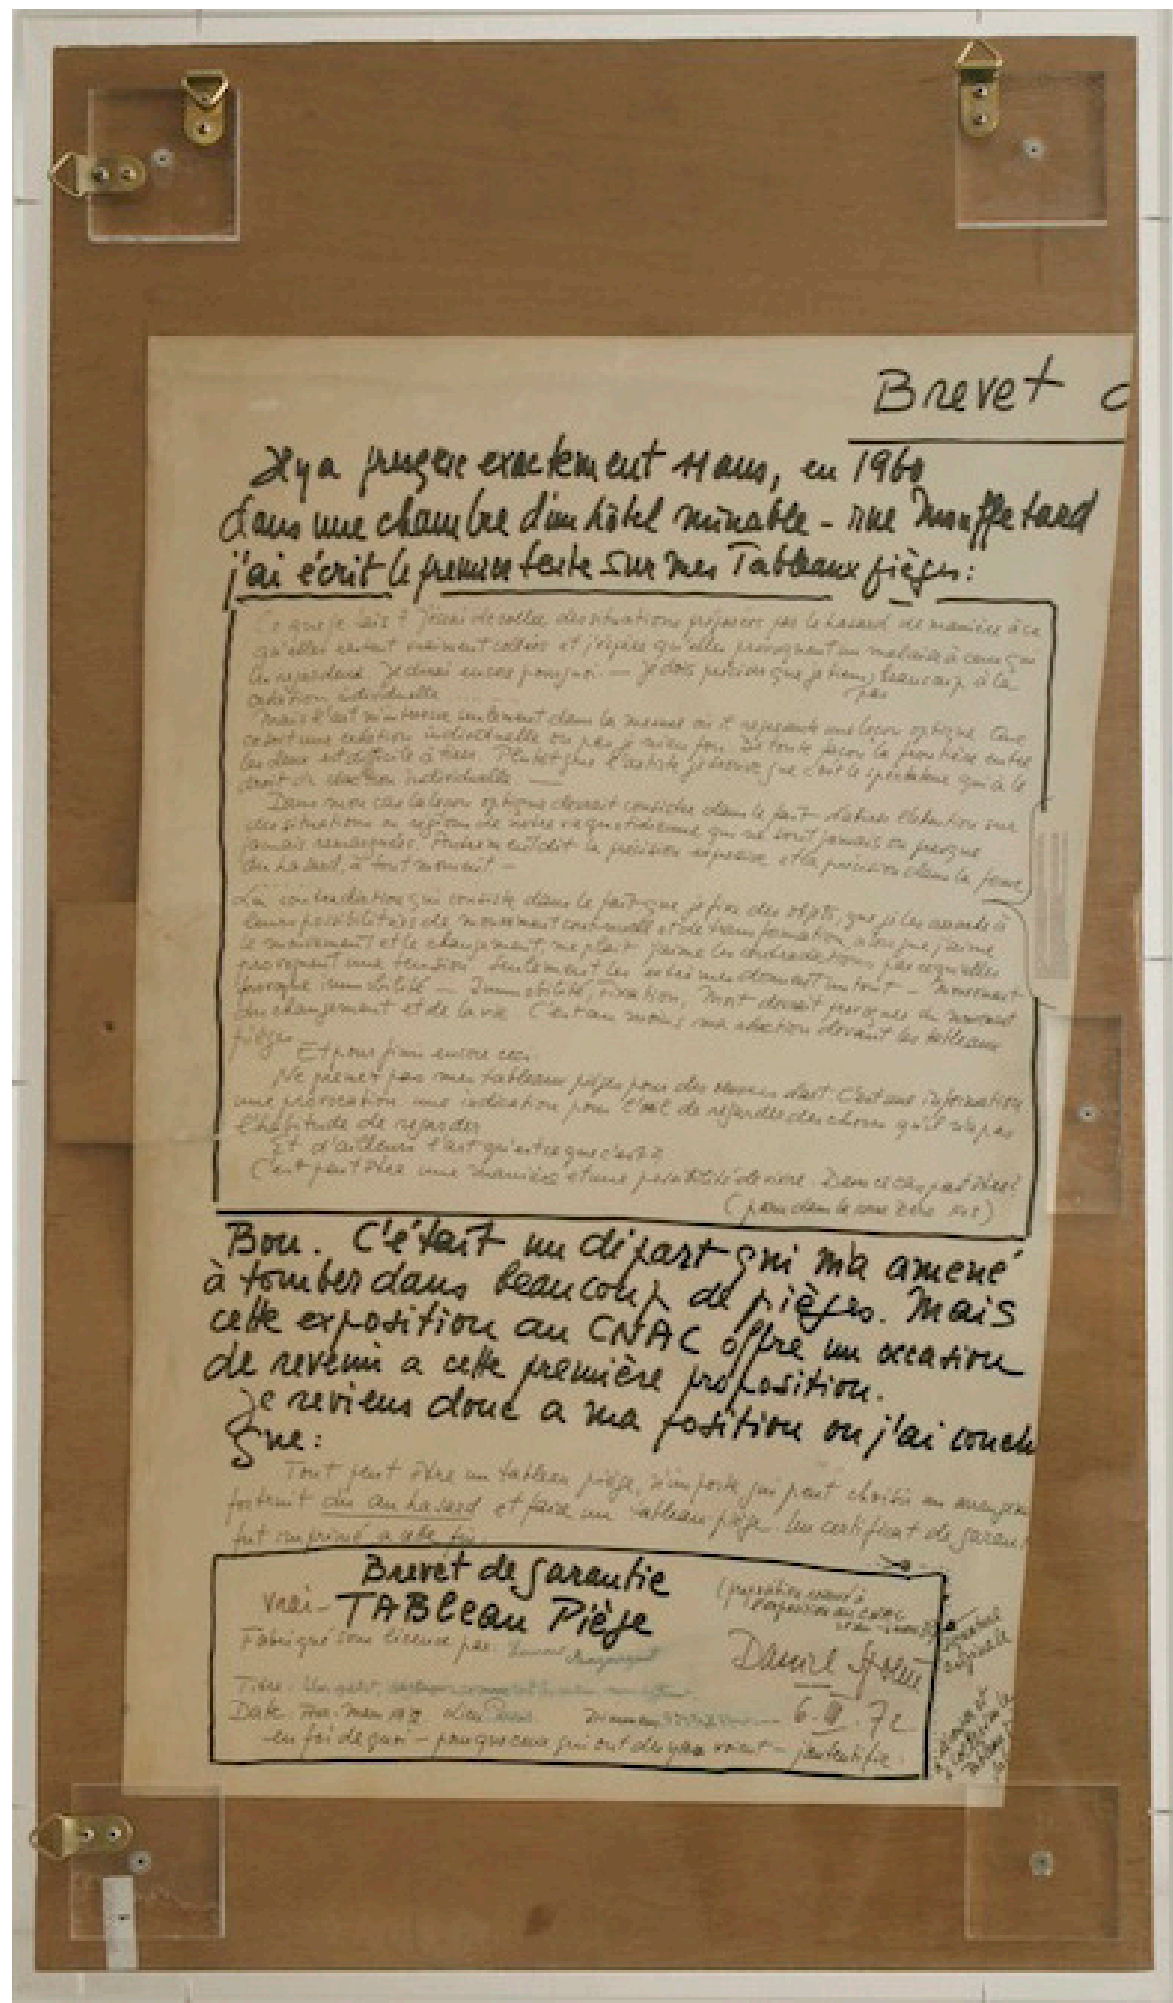 Brevet
Il y a presque exactement 11 ans, en 1960
dans une chambre d'un hôtel minable - rue Mouffetard
j'ai écrit le premier texte sur mes Tableaux pièges:
Ce que je fais? J'essai de coller des situations préparées par le hasard de manière à ce
qu'elles restent vraiment collées et j'espère qu'elles provoquent un malaise à ceux qui
les regardent. Je dirai encore pourquoi. — Je dois préciser que je tiens beaucoup à la
pas
création individuelle
Mais l'art m'interesse seulement dans la mesure ou il represente une leçon optique. Que
ce soit une création individuelle ou pas je m'en fou. De toute façon la frontière entre
les deux est difficile à tirer. Plutot que l'artiste je trouve que c'est le spectateur qui a le
droit de réaction individuelle. —
Dans mon cas la leçon optique devrait consister dans le fait d'attirer l'attention sur
des situations ou régions de notre vie quotidienne qui ne sont jamais ou presque
jamais remarquées. Autrement dit la précision expressive et la précision dans la forme
du hasard, à tout moment -
La contradiction qui consiste dans le fait que je fixe des objets, que je les arrache à
leurs possibilités de mouvement continuelle et de transformation, alors que j'aime
le mouvement et le changement, me plait. J'aime les contradictions parce qu'elles
provoquent une tension. Seulement les extrêmes donnent un tout - Mouvement
provoque immobilité - Immobilité, Fixation, Mort devrait provoquer du mouvement
du changement et de la vie. C'est au moins ma réaction devant les tableaux
pièges.
Et pour finir encore ceci.
Ne prenez pas mes tableaux pièges pour des oeuvres d'art. C'est une information
une provocation une indication pour l'oeil de regarder des choses qu'il n'a pas
l'habitude de regarder
Et d'ailleurs l'art qu'est ce que c'est?
C'est peut être une manière et une possibilité de vivre. Dans ce cas peut être!
(paru dans la revue Zero
Bon. C'était un départ qui m'a amené
à tomber dans beaucoup de pièges. Mais
cette exposition au CNAC offre un occasion
de revenir a cette première proposition.
Je reviens donc a ma position ou j'ai conclu
que:
Tout peut être un tableau piège, n'importe qui peut choisir un
fortuit du au hasard et faire un tableau-piège. Un certificat de
fut imprimé a cette fin.
Brevet de garantie
vrai - TABleau Piège
Fabriqué sous licence par:
Daniel
signature
originale
Titre:
Date
lieu
6. III. 72
en foi de quoi - pour que ceux qui ont des yeux voient - j'autentifie: